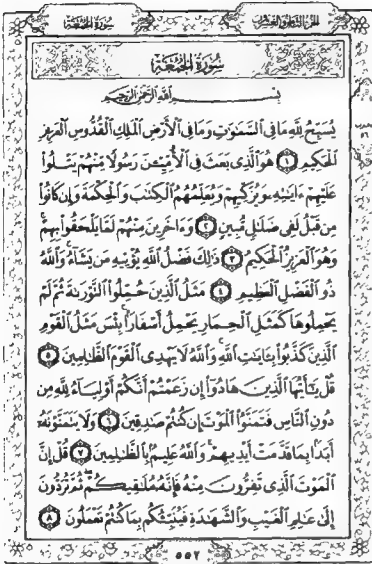 سُورَةُ الجُمُعَةِ
الجزء الثامن والعشرون
سُورَةُ الجُمُعَةِ
بِسْمِ اللَّهِ الرَّحْمَٰنِ الرَّحِيمِ
يُسَبِّحُ لِلَّهِ مَا فِي السَّمَٰوَٰتِ وَمَا فِي الْأَرْضِ الْمَلِكِ الْقُدُّوسِ الْعَزِيزِ
الْحَكِيمِ ١ هُوَ الَّذِي بَعَثَ فِي الْأُمِّيِّـۧنَ رَسُولًا مِّنْهُمْ يَتْلُوا۟
عَلَيْهِمْ ءَايَٰتِهِۦ وَيُزَكِّيهِمْ وَيُعَلِّمُهُمُ الْكِتَٰبَ وَالْحِكْمَةَ وَإِن كَانُوا۟
مِن قَبْلُ لَفِي ضَلَٰلٍ مُّبِينٍ ٢ وَءَاخَرِينَ مِنْهُمْ لَمَّا يَلْحَقُوا۟ بِهِمْ ۚ
وَهُوَ الْعَزِيزُ الْحَكِيمُ ٣ ذَٰلِكَ فَضْلُ اللَّهِ يُؤْتِيهِ مَن يَشَآءُ ۚ وَاللَّهُ
ذُو الْفَضْلِ الْعَظِيمِ ٤ مَثَلُ الَّذِينَ حُمِّلُوا۟ التَّوْرَىٰةَ ثُمَّ لَمْ
يَحْمِلُوهَا كَمَثَلِ الْحِمَارِ يَحْمِلُ أَسْفَارًۢا ۚ بِئْسَ مَثَلُ الْقَوْمِ
الَّذِينَ كَذَّبُوا۟ بِـَٔايَٰتِ اللَّهِ ۚ وَاللَّهُ لَا يَهْدِي الْقَوْمَ الظَّٰلِمِينَ ٥
قُلْ يَٰٓأَيُّهَا الَّذِينَ هَادُوٓا۟ إِن زَعَمْتُمْ أَنَّكُمْ أَوْلِيَآءُ لِلَّهِ مِن
دُونِ النَّاسِ فَتَمَنَّوُا۟ الْمَوْتَ إِن كُنتُمْ صَٰدِقِينَ ٦ وَلَا يَتَمَنَّوْنَهُۥٓ
أَبَدًۢا بِمَا قَدَّمَتْ أَيْدِيهِمْ ۚ وَاللَّهُ عَلِيمٌۢ بِالظَّٰلِمِينَ ٧ قُلْ إِنَّ
الْمَوْتَ الَّذِي تَفِرُّونَ مِنْهُ فَإِنَّهُۥ مُلَٰقِيكُمْ ۖ ثُمَّ تُرَدُّونَ
إِلَىٰ عَٰلِمِ الْغَيْبِ وَالشَّهَٰدَةِ فَيُنَبِّئُكُم بِمَا كُنتُمْ تَعْمَلُونَ ٨
٥٥٢